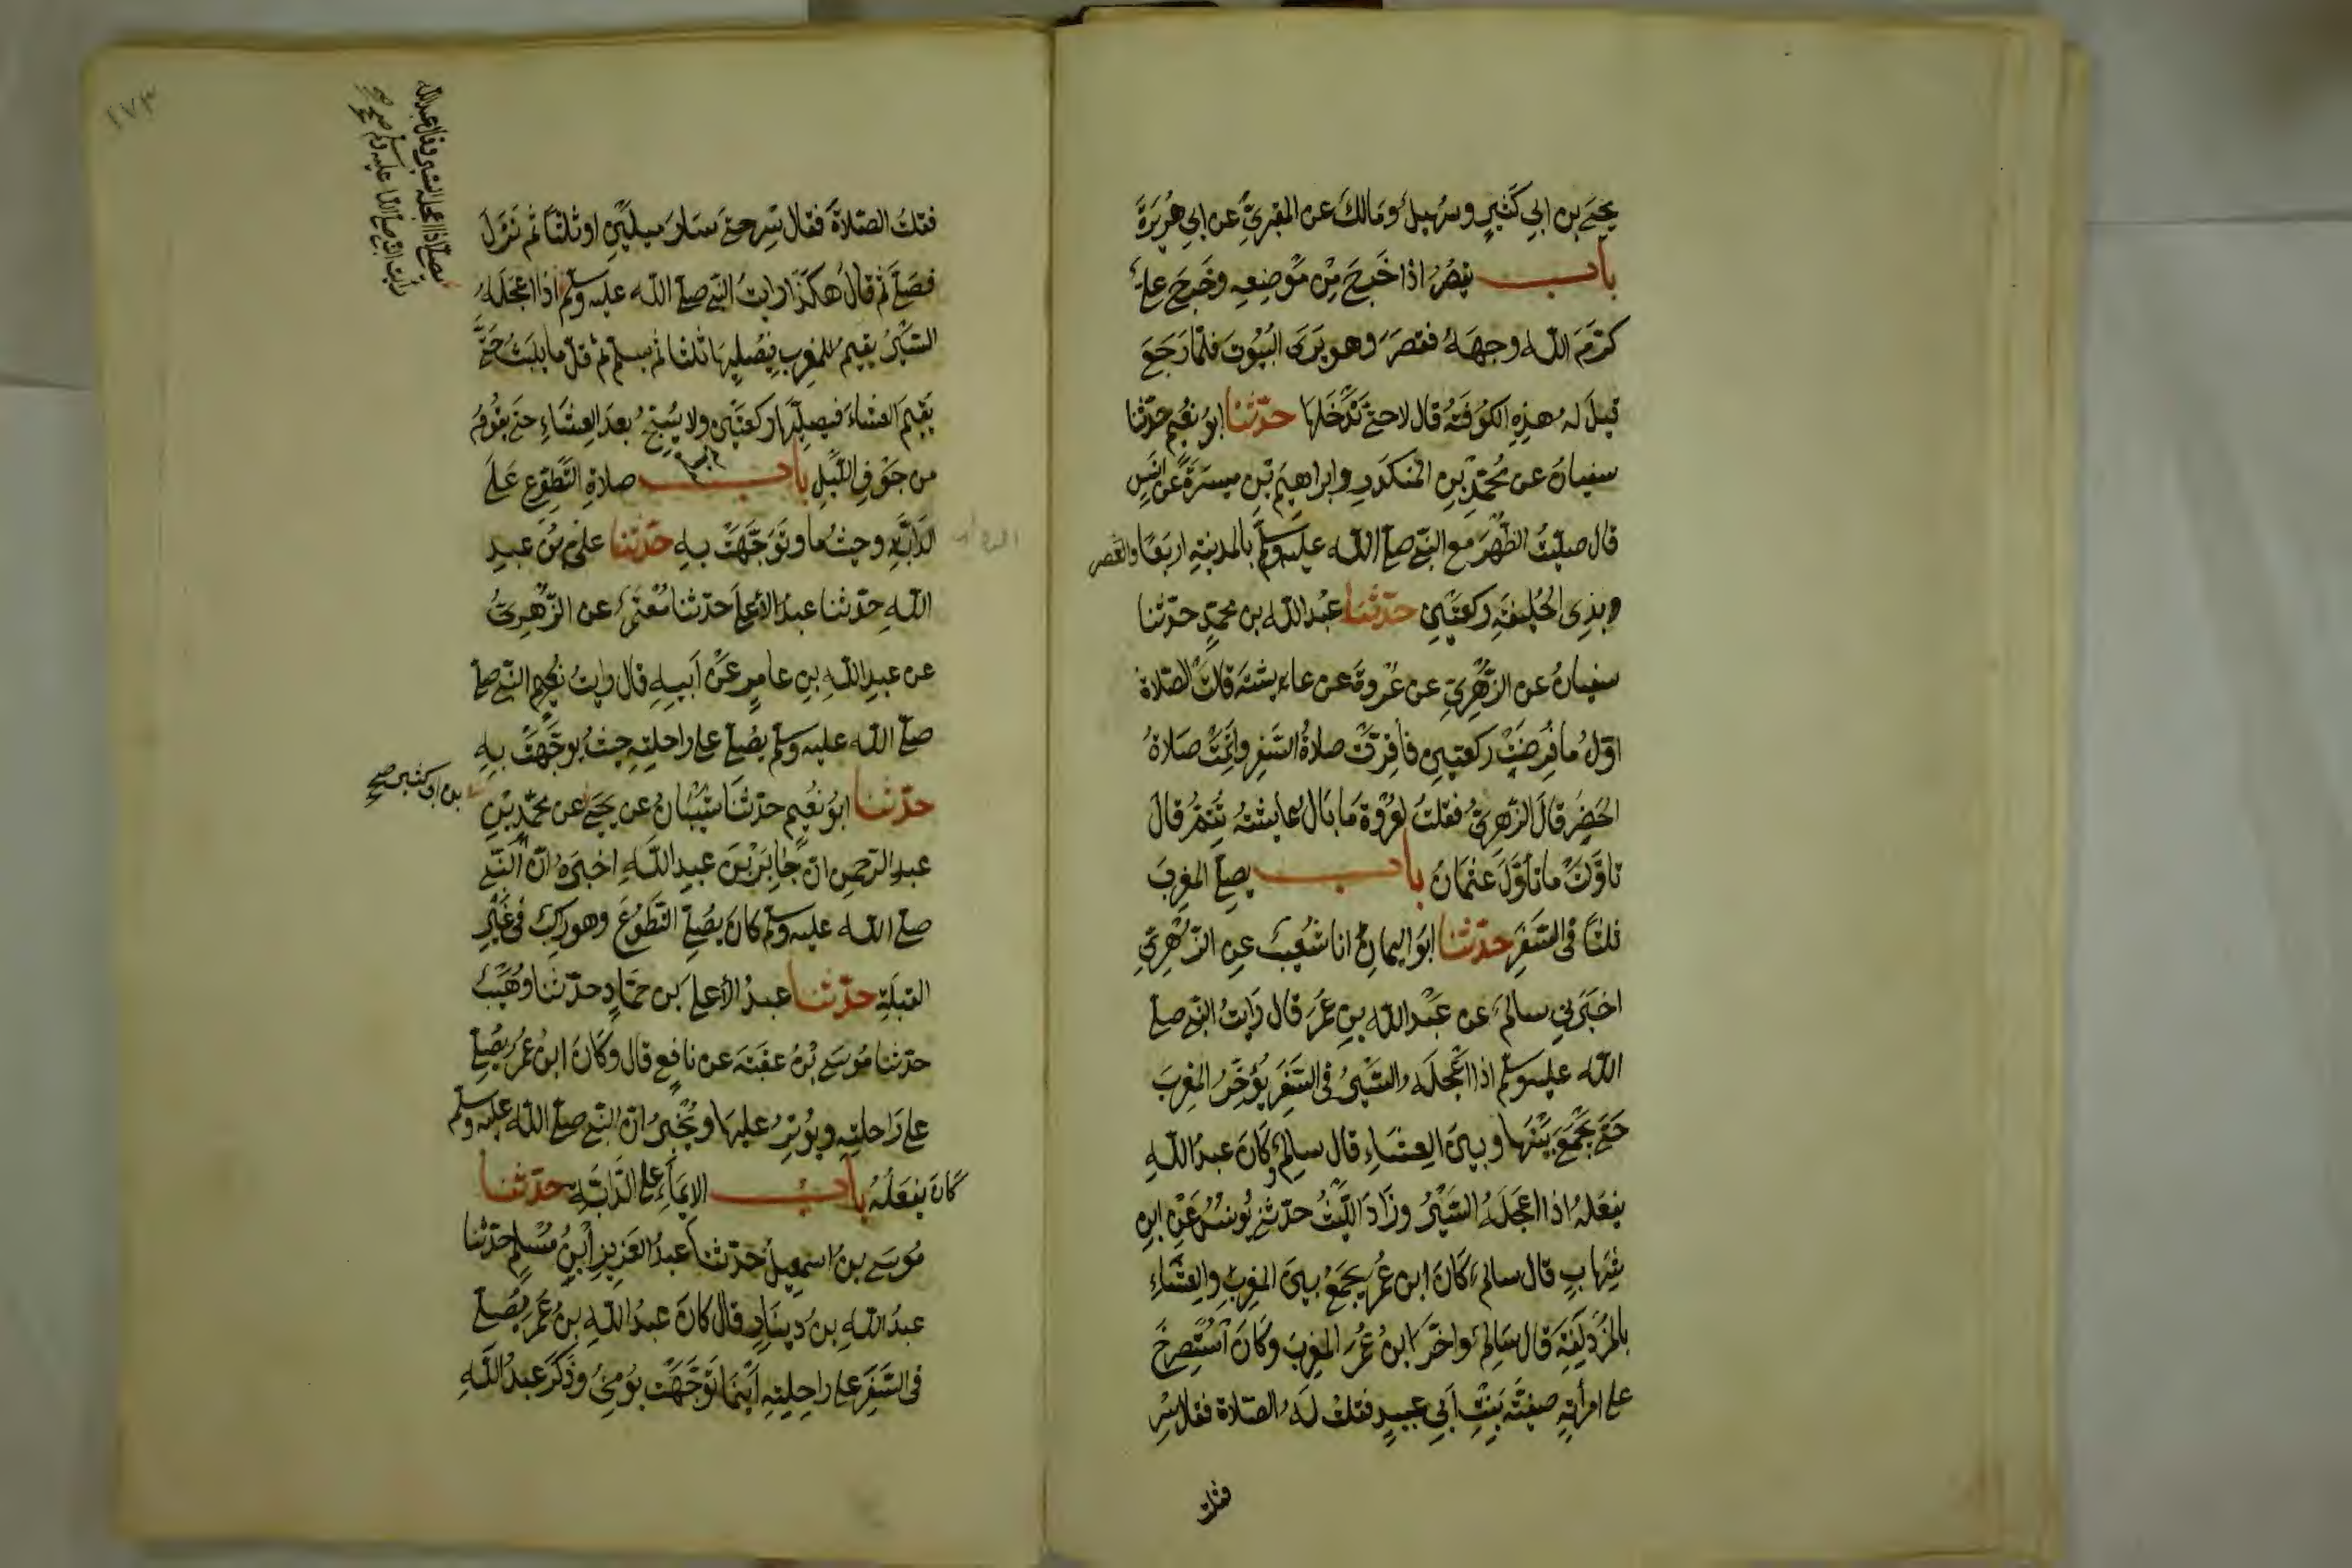 يحيى بن ابي كثير وسهيل ومالك عن المقبري عن ابي هريرة
باب يقصر اذا خرج من موضعه وخرج على
كرم الله وجهه فقصر وهو يرى البيوت فلما رجع
قيل له هذه الكوفة قال لا حتى ندخلها حدثنا ابو نعيم حدثنا
سفيان عن محمد بن المنكدر وابراهيم بن ميسرة عن انس
قال صليت الظهر مع النبي صلى الله عليه وسلم بالمدينة اربعا والعصر
وبذي الحليفة ركعتين حدثنا عبد الله بن محمد حدثنا
سفيان عن الزهري عن عروة عن عايشة قالت الصلاة
اول ما فرضت ركعتين فاقرت صلاة السفر واتمت صلاة
الحضر قال الزهري فقلت لعروة ما بال عايشة تتم قال
تاولت ما تاول عثمان باب يصلى المغرب
ثلثا في السفر حدثنا ابو اليمان انا شعيب عن الزهري
اخبرني سالم عن عبد الله بن عمر قال رايت النبي صلى
الله عليه وسلم اذا اعجله السير في السفر يؤخر المغرب
حتى يجمع بينها وبين العشاء قال سالم وكان عبد الله
يفعله اذا اعجله السير وزاد الليث حدثني يونس عن ابن
شهاب قال سالم كان ابن عمر يجمع بين المغرب والعشاء
بالمزدلفة قال سالم واخر ابن عمر المغرب وكان استصرخ
على امرأته صفية بنت ابي عبيد فقلت له الصلاة فقال سر
فقلت
١٧٣
يصلى اذا اعجله السير وقال عبد الله
رايت النبي صلى الله عليه وسلم صح
فقلت الصلاة فقال سر حتى سار ميلين او ثلثا ثم نزل
فصلى ثم قال هكذا رايت النبي صلى الله عليه وسلم اذا اعجله
السير يقيم المغرب فيصليها ثلثا ثم يسلم ثم قل ما يلبث حتى
يقيم العشاء فيصليها ركعتين ولا يسبح بعد العشاء حتى يقوم
من جوف الليل باب صلاة التطوع على
الدابة وحيثما توجهت به حدثنا علي بن عبد
الله حدثنا عبد الاعلى حدثنا معمر عن الزهري
عن عبد الله بن عامر عن ابيه قال رايت النبي صلى
صلى الله عليه وسلم يصلى على راحلته حيث توجهت به
حدثنا ابو نعيم حدثنا شيبان عن يحيى عن محمد بن
بن ابي كثير صح
عبد الرحمن ان جابر بن عبد الله اخبره ان النبي
صلى الله عليه وسلم كان يصلى التطوع وهو راكب في غير
القبلة حدثنا عبد الاعلى بن حماد حدثنا وهيب
حدثنا موسى بن عقبة عن نافع قال وكان ابن عمر يصلى
على راحلته ويوتر عليها ويخبر ان النبي صلى الله عليه وسلم
كان يفعله باب الايماء على الدابة حدثنا
موسى بن اسمعيل حدثنا عبد العزيز ابن مسلم حدثنا
عبد الله بن دينار قال كان عبد الله بن عمر يصلى
في السفر على راحلته اينما توجهت يومئ وذكر عبد الله